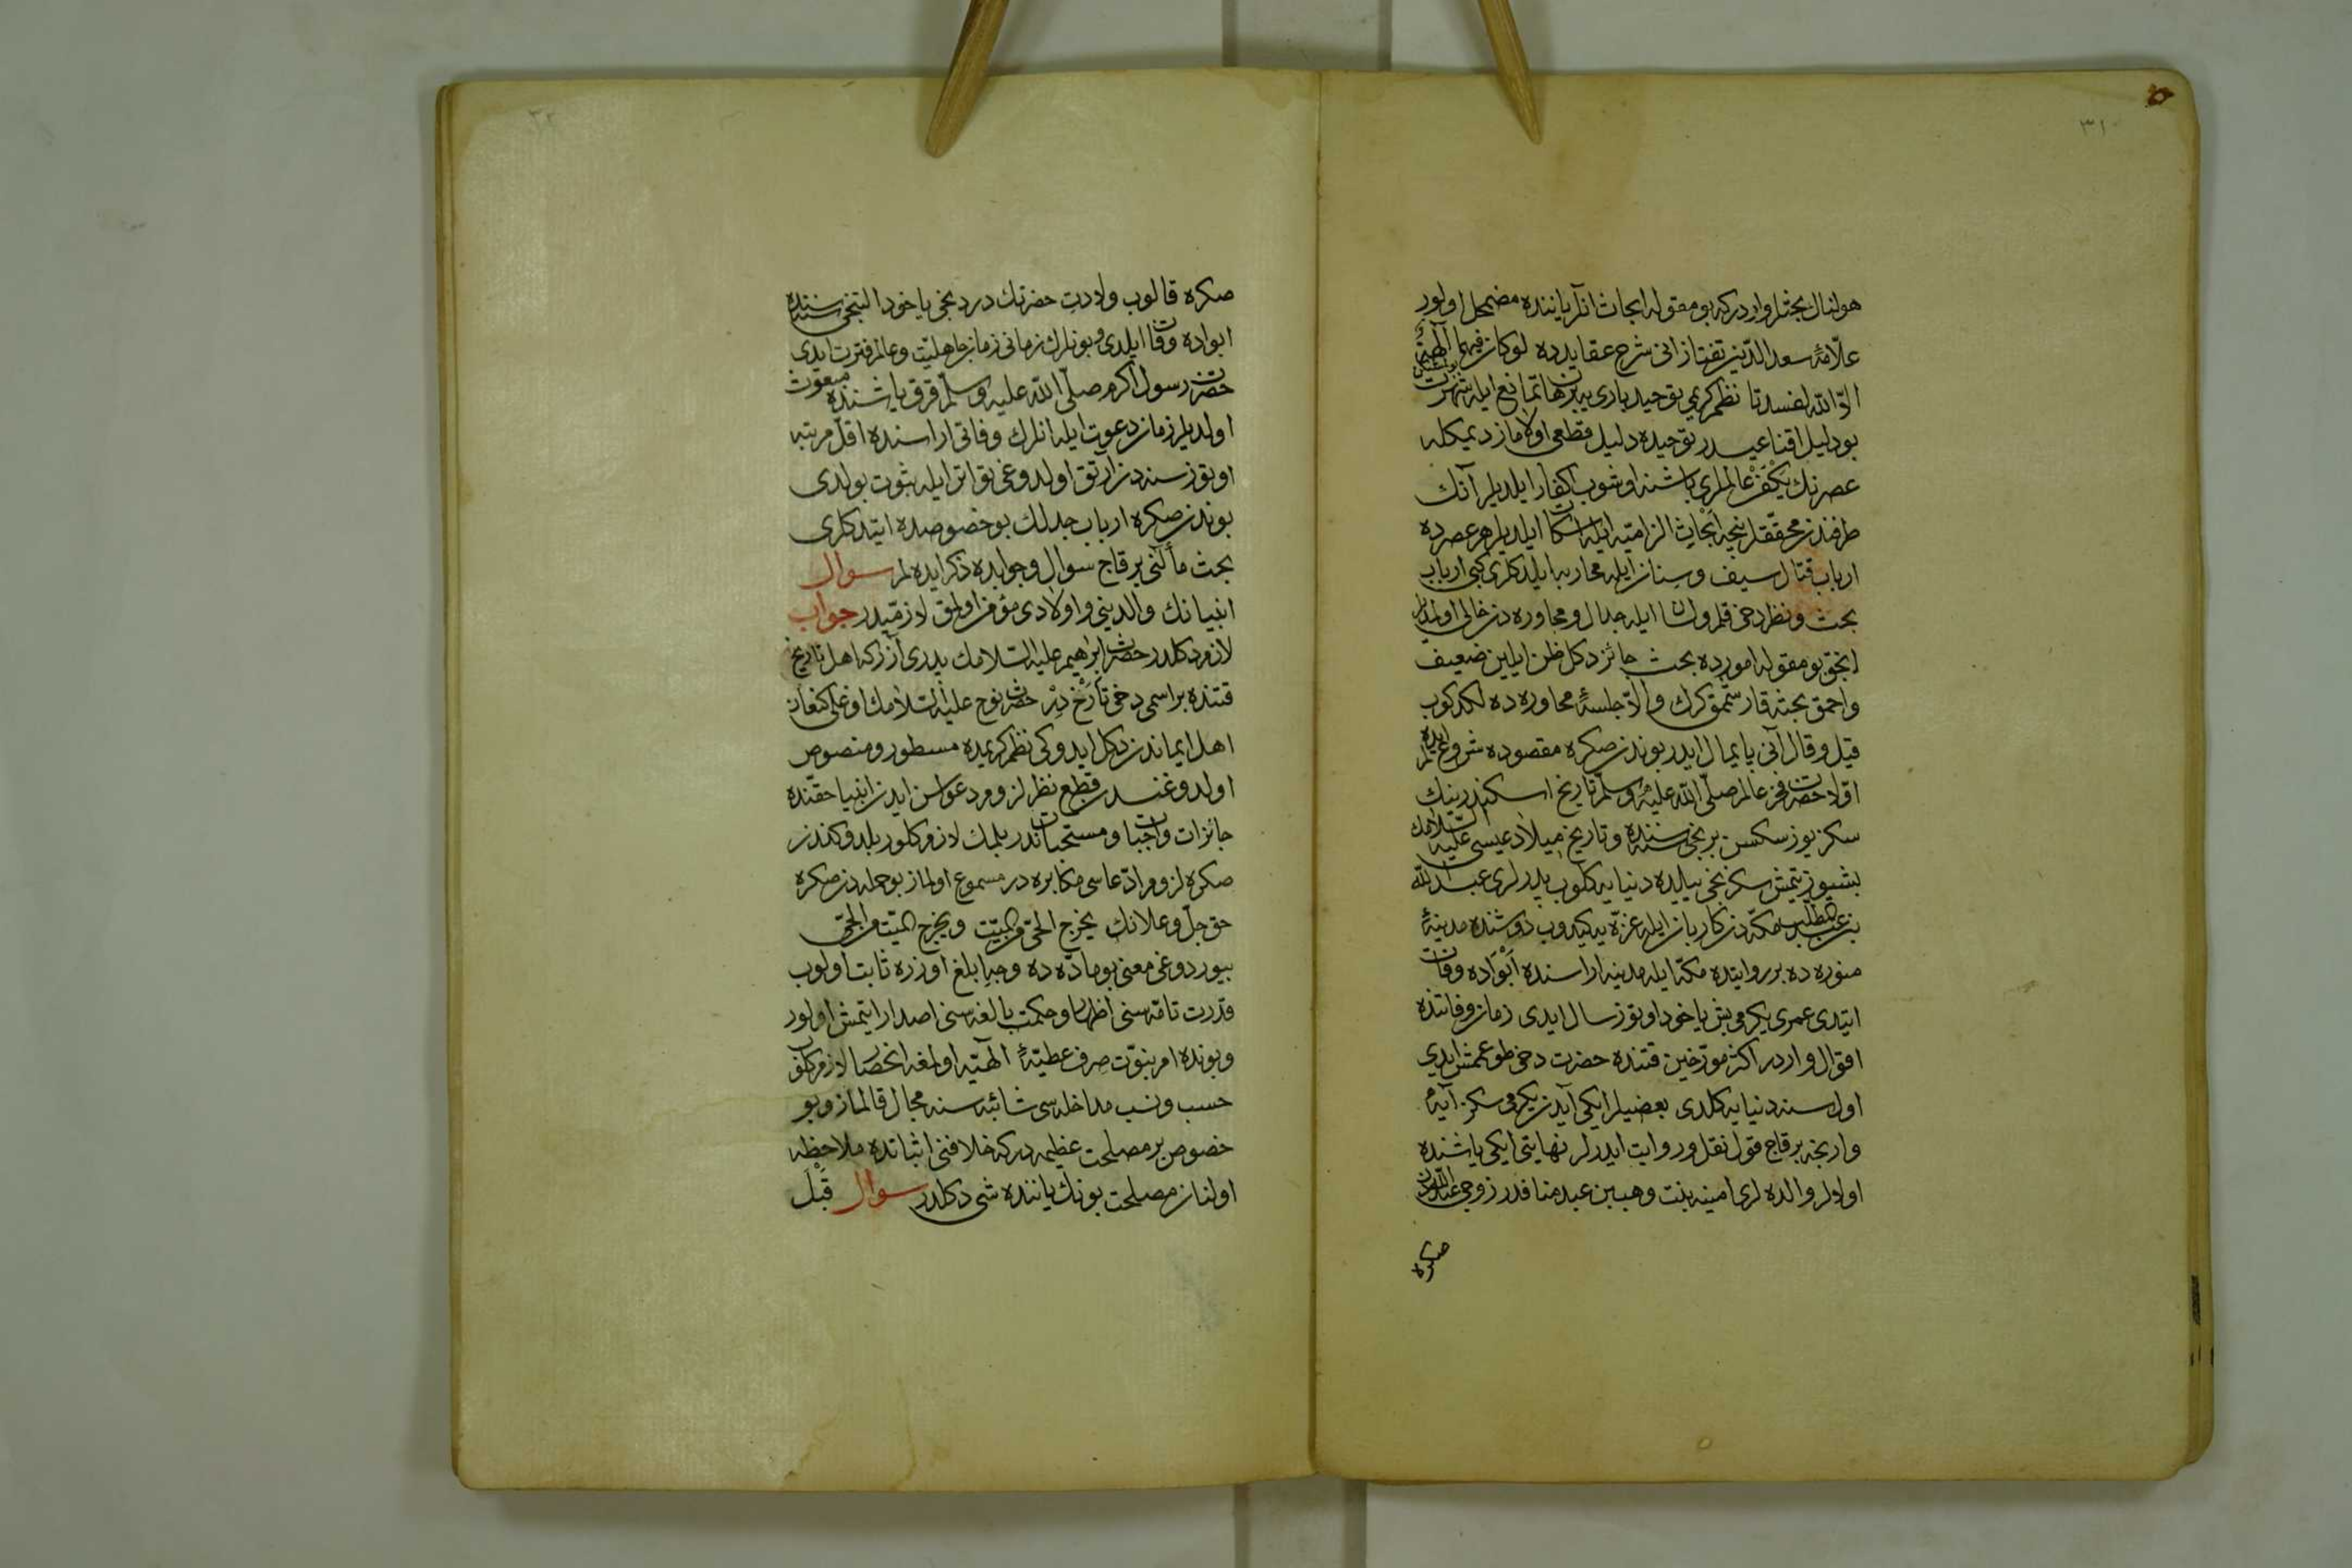 ٣١
هولنال بحثلر واردركه بو مقوله ابحاث انلر یاننده مضمحل اولور
علّامهٔ سعد الدّین تفتازانی شرح عقایدده لو كان فیهما آلهةٌ
الاّ الله لفسدتا نظم كریمی توحید باری یه برهان تمانع ایله شهرت بولمشكن
بو دلیل اقناعیدر توحیده دلیل قطعی اولاماز دیمكله
عصرنك یَكْفَرْ عالملری باشنه اوشوب اكفار ایلدیلر آنك
طرفندن محقّقلر نیجه اَبْحاث الزامیّه ایله اسكات ایلدیلر هر عصرده
ارباب قتال سیف و سنان ایله محاربه ایلدكلری كبی ارباب
بحث و نظر دخی قلم و لسان ایله جدال و محاوره دن خالی اولمدیلر
انجق بو مقوله امورده بحث جائز دكل ظن ایلین ضعیف
و احمق بحثه قارشمق كرك و الاّ جلسهٔ محاوره ده لكدكوب
قیل و قال آنی پایمال ایدر بوندن صكره مقصوده شروع ایده لم
اوّلا حضرت فخر عالم صلّی الله علیه وسلّم تاریخ اسكندرینك
سكز یوز سكسن برنجی سنه سنده و تاریخ میلاد عیسی علیه السّلامك
بشیوز یتمش سكزنجی ییلده دنیایه كلوب پدرلری عبد الله
بن عبد المطّلب مكّه دن كاربان ایله غزّه یه كیدوب دونشنده مدینهٔ
منوره ده بر روایتده مكّه ایله مدینه اراسنده اَبْوَاده وفات
ایتدی عمری یكرمی بش یاخود اوتوز سال ایدی زمان وفاتنده
اقوال واردر اكثر مورّخین قتنده حضرت دخی طوغمش ایدی
اول سنه دنیایه كلدی بعضیلر ایكی آیدن یكرمی سكز آیه
وارنجه بر قاچ قول نقل و روایت ایدرلر نهایتی ایكی یاشنده
اولالر والده لری امینه بنت وهب بن عبد منافدر زوجی عبد اللهدن
صكره
٣٢
صكره قالوب ولادت حضرتك دردنجی یاخود التنجی سنه سنده
ابواده وفات ایلدی و بونلرك زمانی زمان جاهلیّت و عالم فترت ایدی
حضرت رسول اكرم صلّی الله علیه وسلّم قرق یاشنده مبعوث
اولدیلر زمان دعوت ایله انلرك وفاتی اراسنده اقلّ مرتبه
اوتوز سنه دن آرتق اولدوغی تواتر ایله ثبوت بولدی
بوندن صكره ارباب جدلك بو خصوصده ایتدكلری
بحث مآلنی بر قاچ سوال و جوابده ذكر ایده لم سوال
انبیانك والدینی و اولادی مؤمن اولمق لازممیدر جواب
لازم دكلدر حضرت ابرهیم علیه السّلامك پدری آزر كه اهل تاریخ
قتنده بر اسمی دخی تَارَخْ دِرْ حضرت نوح علیه السّلامك اوغلی كنعان
اهل ایماندن دكل ایدوكی نظم كریمده مسطور و منصوص
اولدوغندن قطع نظر لزوم دعواسن ایدن انبیا حقّنده
جائزات و واجبات و مستحبات ندر بلمك لازم كلور بلدوكندن
صكره لزوم ادّعاسی مكابره در مسموع اولماز بو جمله دن صكره
حق جلّ و علانك یخرج الحیّ من المیّت و یخرج المیّت من الحیّ
بیوردوغی معنی بو مادّه ده وجه ابلغ اوزره ثابت اولوب
قدرت تامّه سنی اظهار و حكمت بالغه سنی اصدار ایتمش اولور
و بونده امر نبوّت صرف عطیّهٔ الهیّه اولمغه انحصار لازم كلوب
حسب و نسب مداخله سی شائبه سنه مجال قالماز و بو
خصوص بر مصلحت عظیمه دركه خلافنی اثباتده ملاحظه
اولنان مصلحت بونك یاننده شی دكلدر سوال قَبْلَ